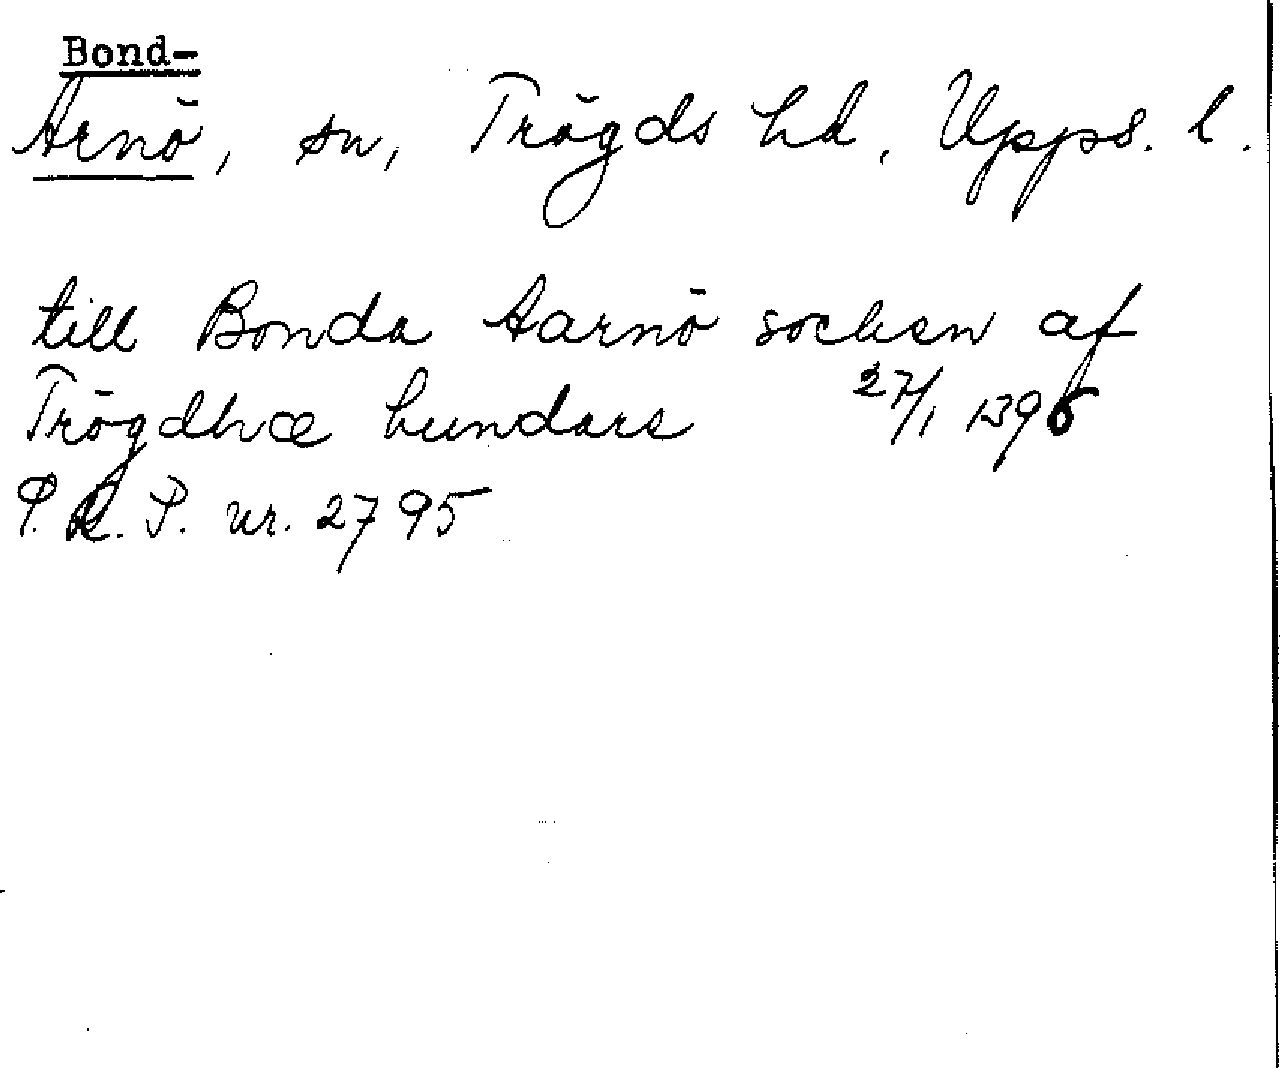 Bond-
Arnö, sn, Trögds hd, Upps. l.
till Bonda Aarnö socken af
Trögdhæ hundare 27/1 1396
P. R. P. nr. 2795